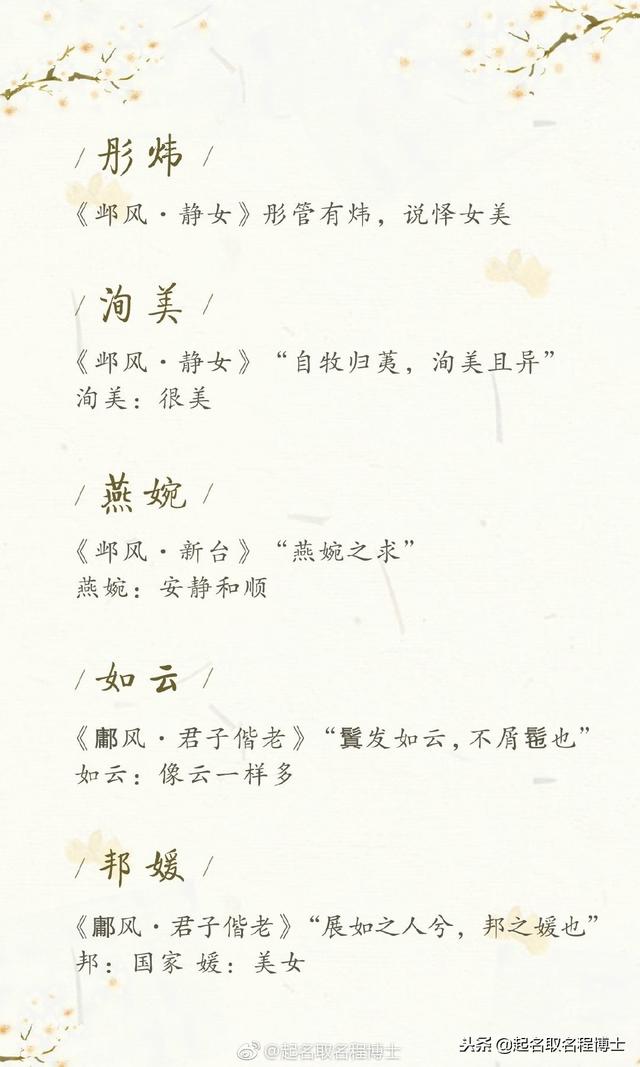 / 彤炜 /
《邶风·静女》彤管有炜，说怿女美
/ 洵美 /
《邶风·静女》“自牧归荑，洵美且异”
洵美：很美
/ 燕婉 /
《邶风·新台》“燕婉之求”
燕婉：安静和顺
/ 如云 /
《鄘风·君子偕老》“鬒发如云，不屑髢也”
如云：像云一样多
/ 邦媛 /
《鄘风·君子偕老》“展如之人兮，邦之媛也”
邦：国家 媛：美女
@起名取名程博士
头条 @起名取名程博士